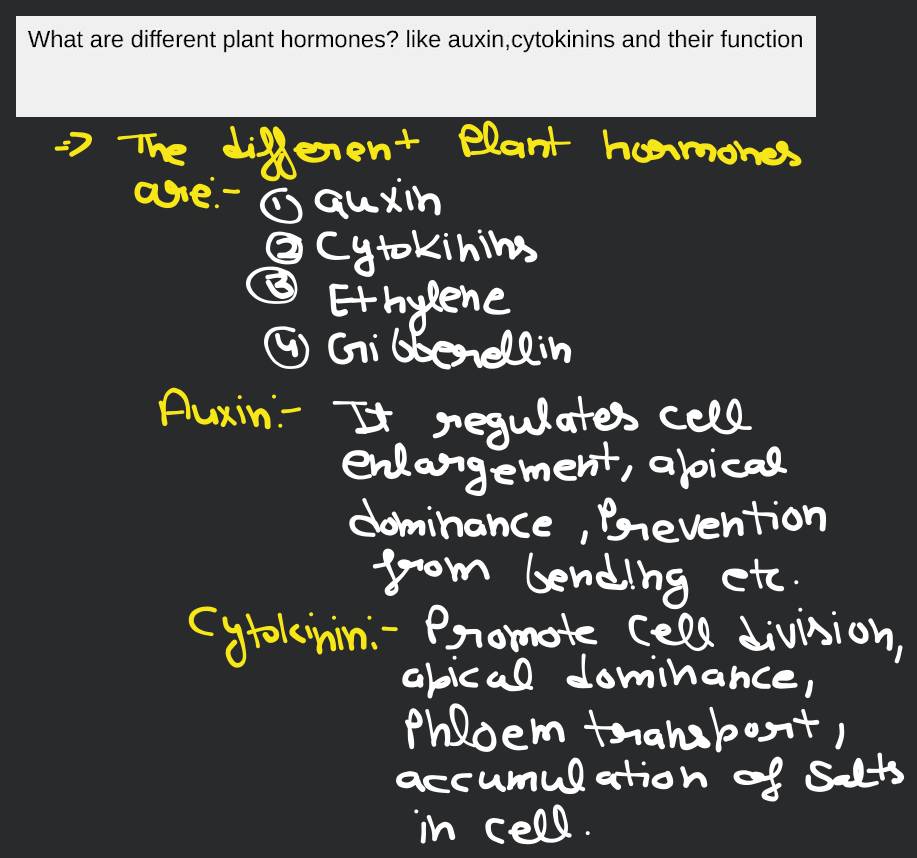 What are different plant hormones? like auxin,cytokinins and their function
=> The different Plant hormones
are:-
① auxin
② Cytokinins
③ Ethylene
④ Gibberellin
Auxin:- It regulates cell
enlargement, apical
dominance, Prevention
from bending etc.
Cytokinin:- Promote Cell division,
apical dominance,
Phloem transport,
accumulation of Salts
in cell.